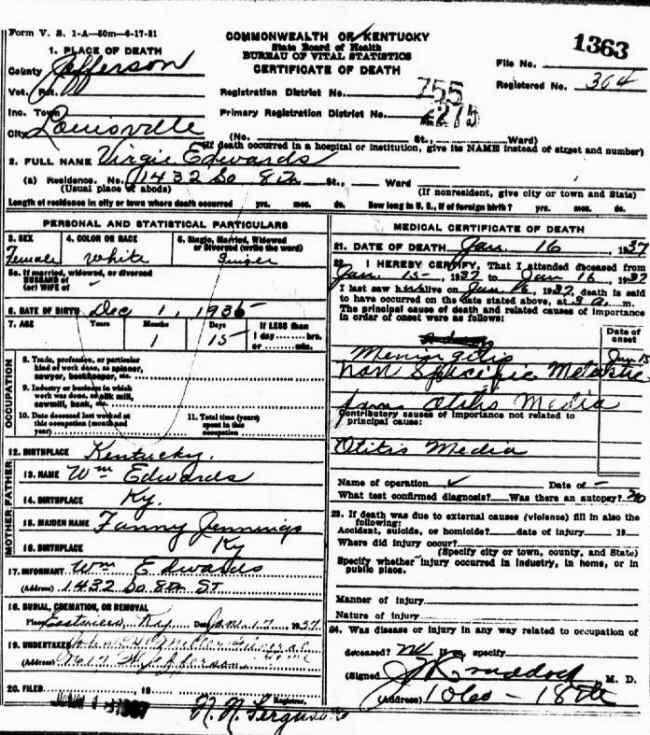 Form V. S. 1-A—50m—6-17-31
COMMONWEALTH OF KENTUCKY
State Board of Health
BUREAU OF VITAL STATISTICS
CERTIFICATE OF DEATH
1363
File No.
Registered No. 364
1. PLACE OF DEATH
County Jefferson
Vot. Pct.
Inc. Town
City Louisville
Registration District No. 755
Primary Registration District No. 2275
(No. St., Ward)
(If death occurred in a hospital or institution, give its NAME instead of street and number)
2. FULL NAME Virgie Edwards
(a) Residence. No. 1432 So 8th St., Ward
(Usual place of abode) (If nonresident, give city or town and State)
Length of residence in city or town where death occurred yrs. mos. ds. How long in U. S., if of foreign birth? yrs. mos. ds.
PERSONAL AND STATISTICAL PARTICULARS
3. SEX 4. COLOR OR RACE 5. Single, Married, Widowed
or Divorced (write the word)
Female white
5a. If married, widowed, or divorced
HUSBAND of
(or) WIFE of -
6. DATE OF BIRTH Dec 1, 1936
7. AGE Years Months Days If LESS than
1 15 1 day hrs.
or min.
OCCUPATION
8. Trade, profession, or particular
kind of work done, as spinner,
sawyer, bookkeeper, etc.
9. Industry or business in which
work was done, as silk mill,
sawmill, bank, etc.
10. Date deceased last worked at
this occupation (month and
year)
11. Total time (years)
spent in this
occupation
12. BIRTHPLACE Kentucky.
FATHER
13. NAME Wm Edwards
14. BIRTHPLACE Ky.
MOTHER
15. MAIDEN NAME Fanny Jennings
16. BIRTHPLACE Ky
17. INFORMANT Wm Edwards
(Address) 1432 So 8th ST
18. BURIAL, CREMATION, OR REMOVAL
Place Ky Date Jan. 17 1937
19. UNDERTAKER
(Address)
20. FILED 19
N. N. Ferguson Registrar.
MEDICAL CERTIFICATE OF DEATH
21. DATE OF DEATH Jan. 16 1937
22. I HEREBY CERTIFY, That I attended deceased from
Jan. 15- 1937 to Jan 16, 1937
I last saw h alive on Jan 16, 1937, death is said
to have occurred on the date stated above, at 3 a. m.
The principal cause of death and related causes of importance
in order of onset were as follows:
Date of
onset
Meningitis Jan 15
non Specific Metastic
from Otitis Media
Contributory causes of importance not related to
principal cause:
Otitis Media
Name of operation Date of -
What test confirmed diagnosis? Was there an autopsy? no
23. If death was due to external causes (violence) fill in also the
following:
Accident, suicide, or homicide? date of injury 19
Where did injury occur?
(Specify city or town, county, and State)
Specify whether injury occurred in industry, in home, or in
public place.
Manner of injury
Nature of injury
24. Was disease or injury in any way related to occupation of
deceased? no If so, specify
(Signed M. D.
(Address) 1 Oleo - 18th